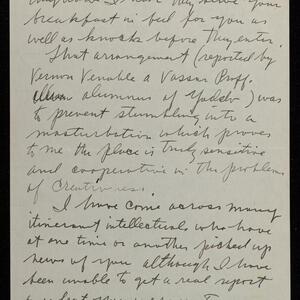 breakfast in bed for you as
well as knocks before they enter.
That arrangement (reported by
Vernon Venable a Vassar Prof.
alumnus of Yaddo) was
to prevent stumbling into a
masturbation which proves
to me the place is truly sensitive
and cooperative in the problems
of creativeness.
I have come across many
itinerant intellectuals who have
at one time or another picked up
news of you although I have
been unable to get a real report